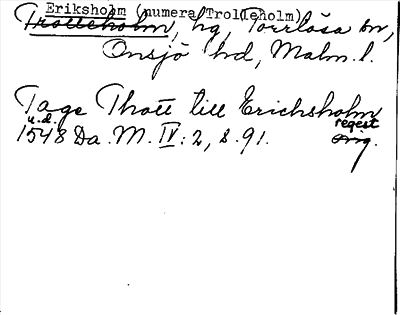 Eriksholm (numera Trolleholm)
Trolleholm, hg, Torrlösa sn,
Onsjö hd, Malm. l.
Tage Thott till Erichsholm
u.d. regest
1548 Da. M. IV: 2, s. 91. Orig.